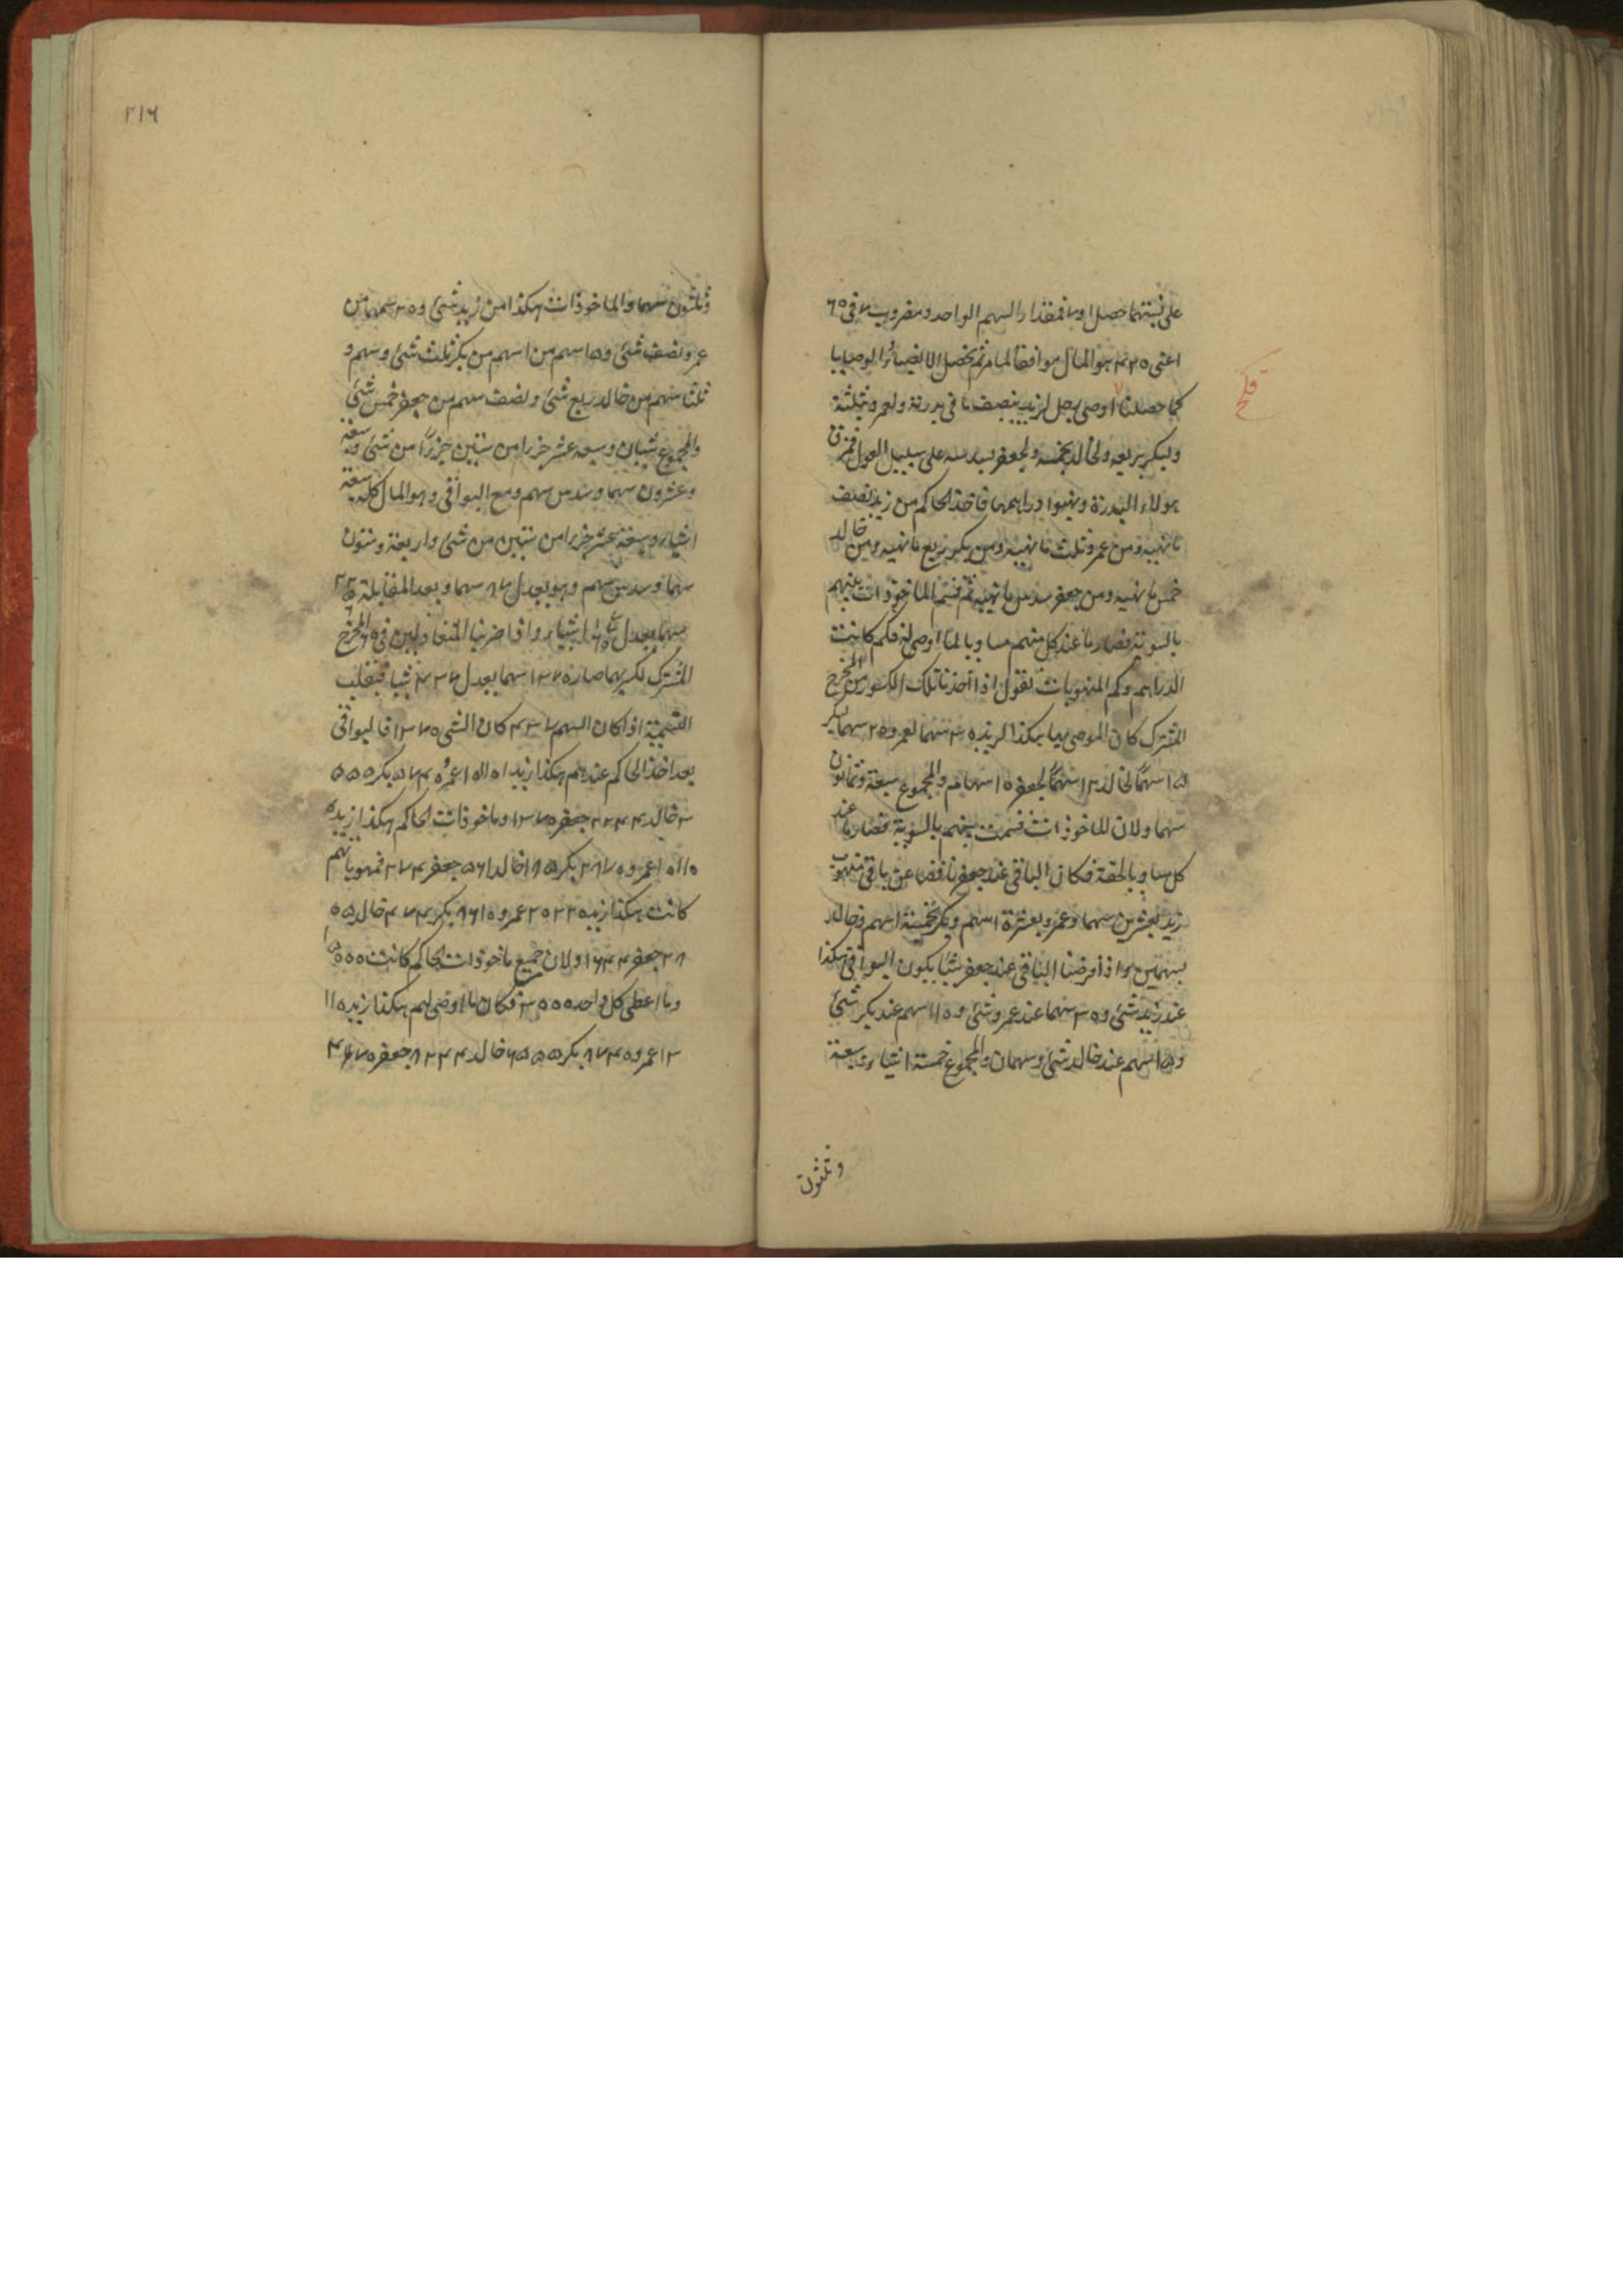 على نسبتهما حصل ١ و٧ فمقدار السهم الواحد ومضروب ٧ فى ٦٥
اعنى ٤٣٥ هو المال موافقا لما مر ثم نحصل الانصباء والوصايا
كما حصلنا اوصى رجل لزيد بنصف ما فى بدرته ولعمرو بثلثه
ولبكر بربعه ولخالد بخمسه ولجعفر بسدسه على سبيل العول فمزق
هولاء البدرة ونهبوا دراهمها فاخذ الحاكم من زيد نصف
ما نهبه ومن عمرو ثلث ما نهبه ومن بكر ربع ما نهبه ومن خالد
خمس ما نهبه ومن جعفر سدس ما نهبه ثم قسم الماخوذات بينهم
بالسوية فصار ما عند كل منهم مساويا لما اوصى له فكم كانت
الدراهم وكم المنهوبات نقول اذا اخذنا تلك الكسور من المخرج
المشترك كان الموصى بها هكذا لزيد ٣٠ سهما لعمرو ٢٠ سهما لبكر
١٥ سهما لخالد ١٢ سهما لجعفر ١٠ اسهام والمجموع سبعة وثمانون
سهما ولان الماخوذات قسمت بينهم بالسوية فصار ما عند
كل مساويا لحقه فكان الباقى عند جعفر ناقصا عن باقى منهوب
زيد بعشرين سهما وعمرو بعشرة اسهم وبكر بخمسة اسهم وخالد
بسهمين واذا فرضنا الباقى عند جعفر شيئا يكون البواقى هكذا
عند زيد شئ و٢٠ سهما عند عمرو شئ و١٠ اسهم عند بكر شئ
و٥ اسهم عند خالد شئ وسهمان والمجموع خمسة اشياء وسبعة
وثلثون
٢١٦
وثلثون سهما والماخوذات هكذا من زيد شئ و٢٠ سهما من
عمرو نصف شئ و٥ اسهم من بكر ثلث شئ وسهم و
ثلثا سهم من خالد ربع شئ ونصف سهم من جعفر خمس شئ
والمجموع شيئان وسبعة عشر جزءا من ستين جزءا من شئ وسبعة
وعشرون سهما وسدس سهم ومع البواقى وهو المال كله سبعة
اشياء وسبعة عشر جزءا من ستين من شئ واربعة وستون
سهما وسدس سهم وهو يعدل ٨٧ سهما وبعد المقابلة
سهما يعدل اشياء واذا ضربنا المتعادلين فى ٦٠ المخرج
المشترك لكسريهما صار ١٣٧٠ سهما يعدل ٤٣٧ شيئا فبقلب
التسمية اذا كان السهم ٤٣٧ كان الشئ ١٣٧٠ فالبواقى
بعد اخذ الحاكم عندهم هكذا زيد ١٠١١٠ عمرو ٥٧٤٠ بكر ٣٥٥٥
خالد ٢٢٤٤ جعفر ١٣٧٠ وماخوذات الحاكم هكذا زيد
١٠١١٠ عمرو ٢٨٧٠ بكر ١١٨٥ خالد ٥٦١ جعفر ٢٧٤ فمنهوباتهم
كانت هكذا زيد ٢٠٢٢٠ عمرو ٨٦١٠ بكر ٤٧٤٠ خالد
٢٨٠٥ جعفر ١٦٤٤ ولان جميع ماخوذات الحاكم كانت ١٥٠٠٠
وما اعطى كل واحد ٣٠٠٠ فكان ما اوصى لهم هكذا زيد
١٣١١٠ عمرو ٨٧٤٠ بكر ٦٥٥٥ خالد ٥٢٤٤ جعفر ٤٣٧٠